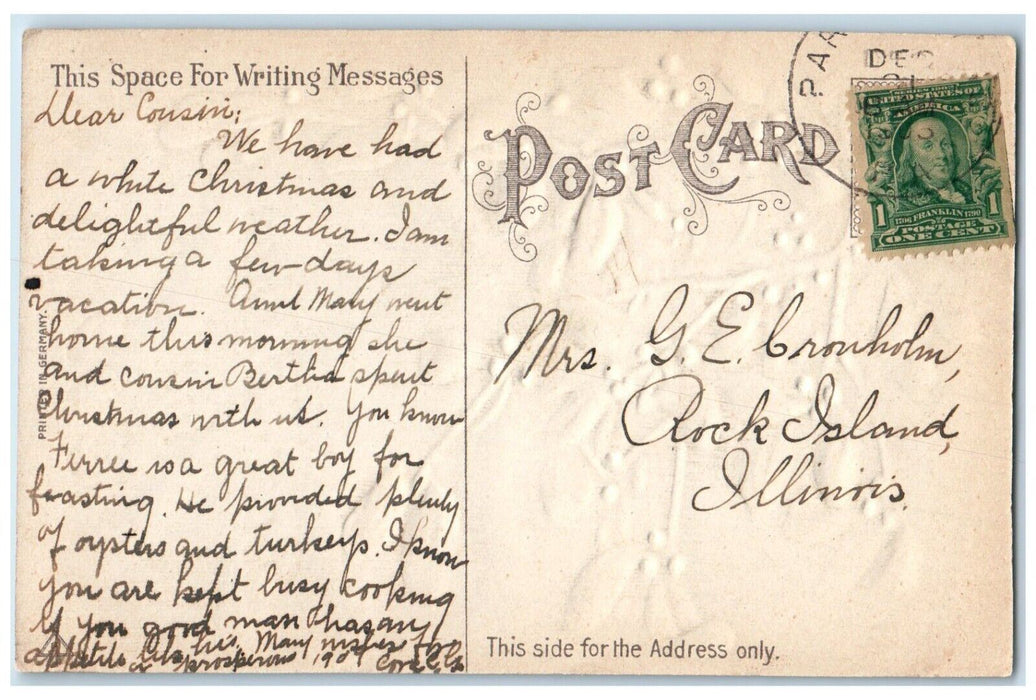 This Space For Writing Messages
Dear Cousin;
We have had
a white Christmas and
delightful weather. I am
taking a few days
vacation. Aunt Mary went
home this morning she
and cousin Bertha spent
Christmas with us. You know
Ferree is a great boy for
feasting. He provided plenty
of oysters and turkeys. I know
you are kept busy cooking
if you good man has any
appetite like his. Many wishes for
a prosperous 1909
PRINTED IN GERMANY.
POST CARD
PAR
DEC
SERIES 1902
UNITED STATES OF
AMERICA
1 1706 FRANKLIN 1790 1
POSTAGE
ONE CENT
Mrs. G. E. Cronholm,
Rock Island,
Illinois.
This side for the Address only.